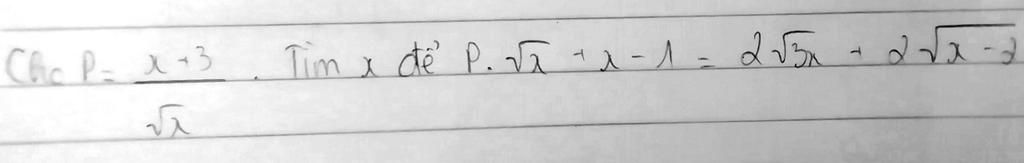 Cho P = \frac{x+3}{\sqrt{x}}. Tìm x để P.\sqrt{x} + x - 1 = 2\sqrt{3x} + 2\sqrt{x-2}